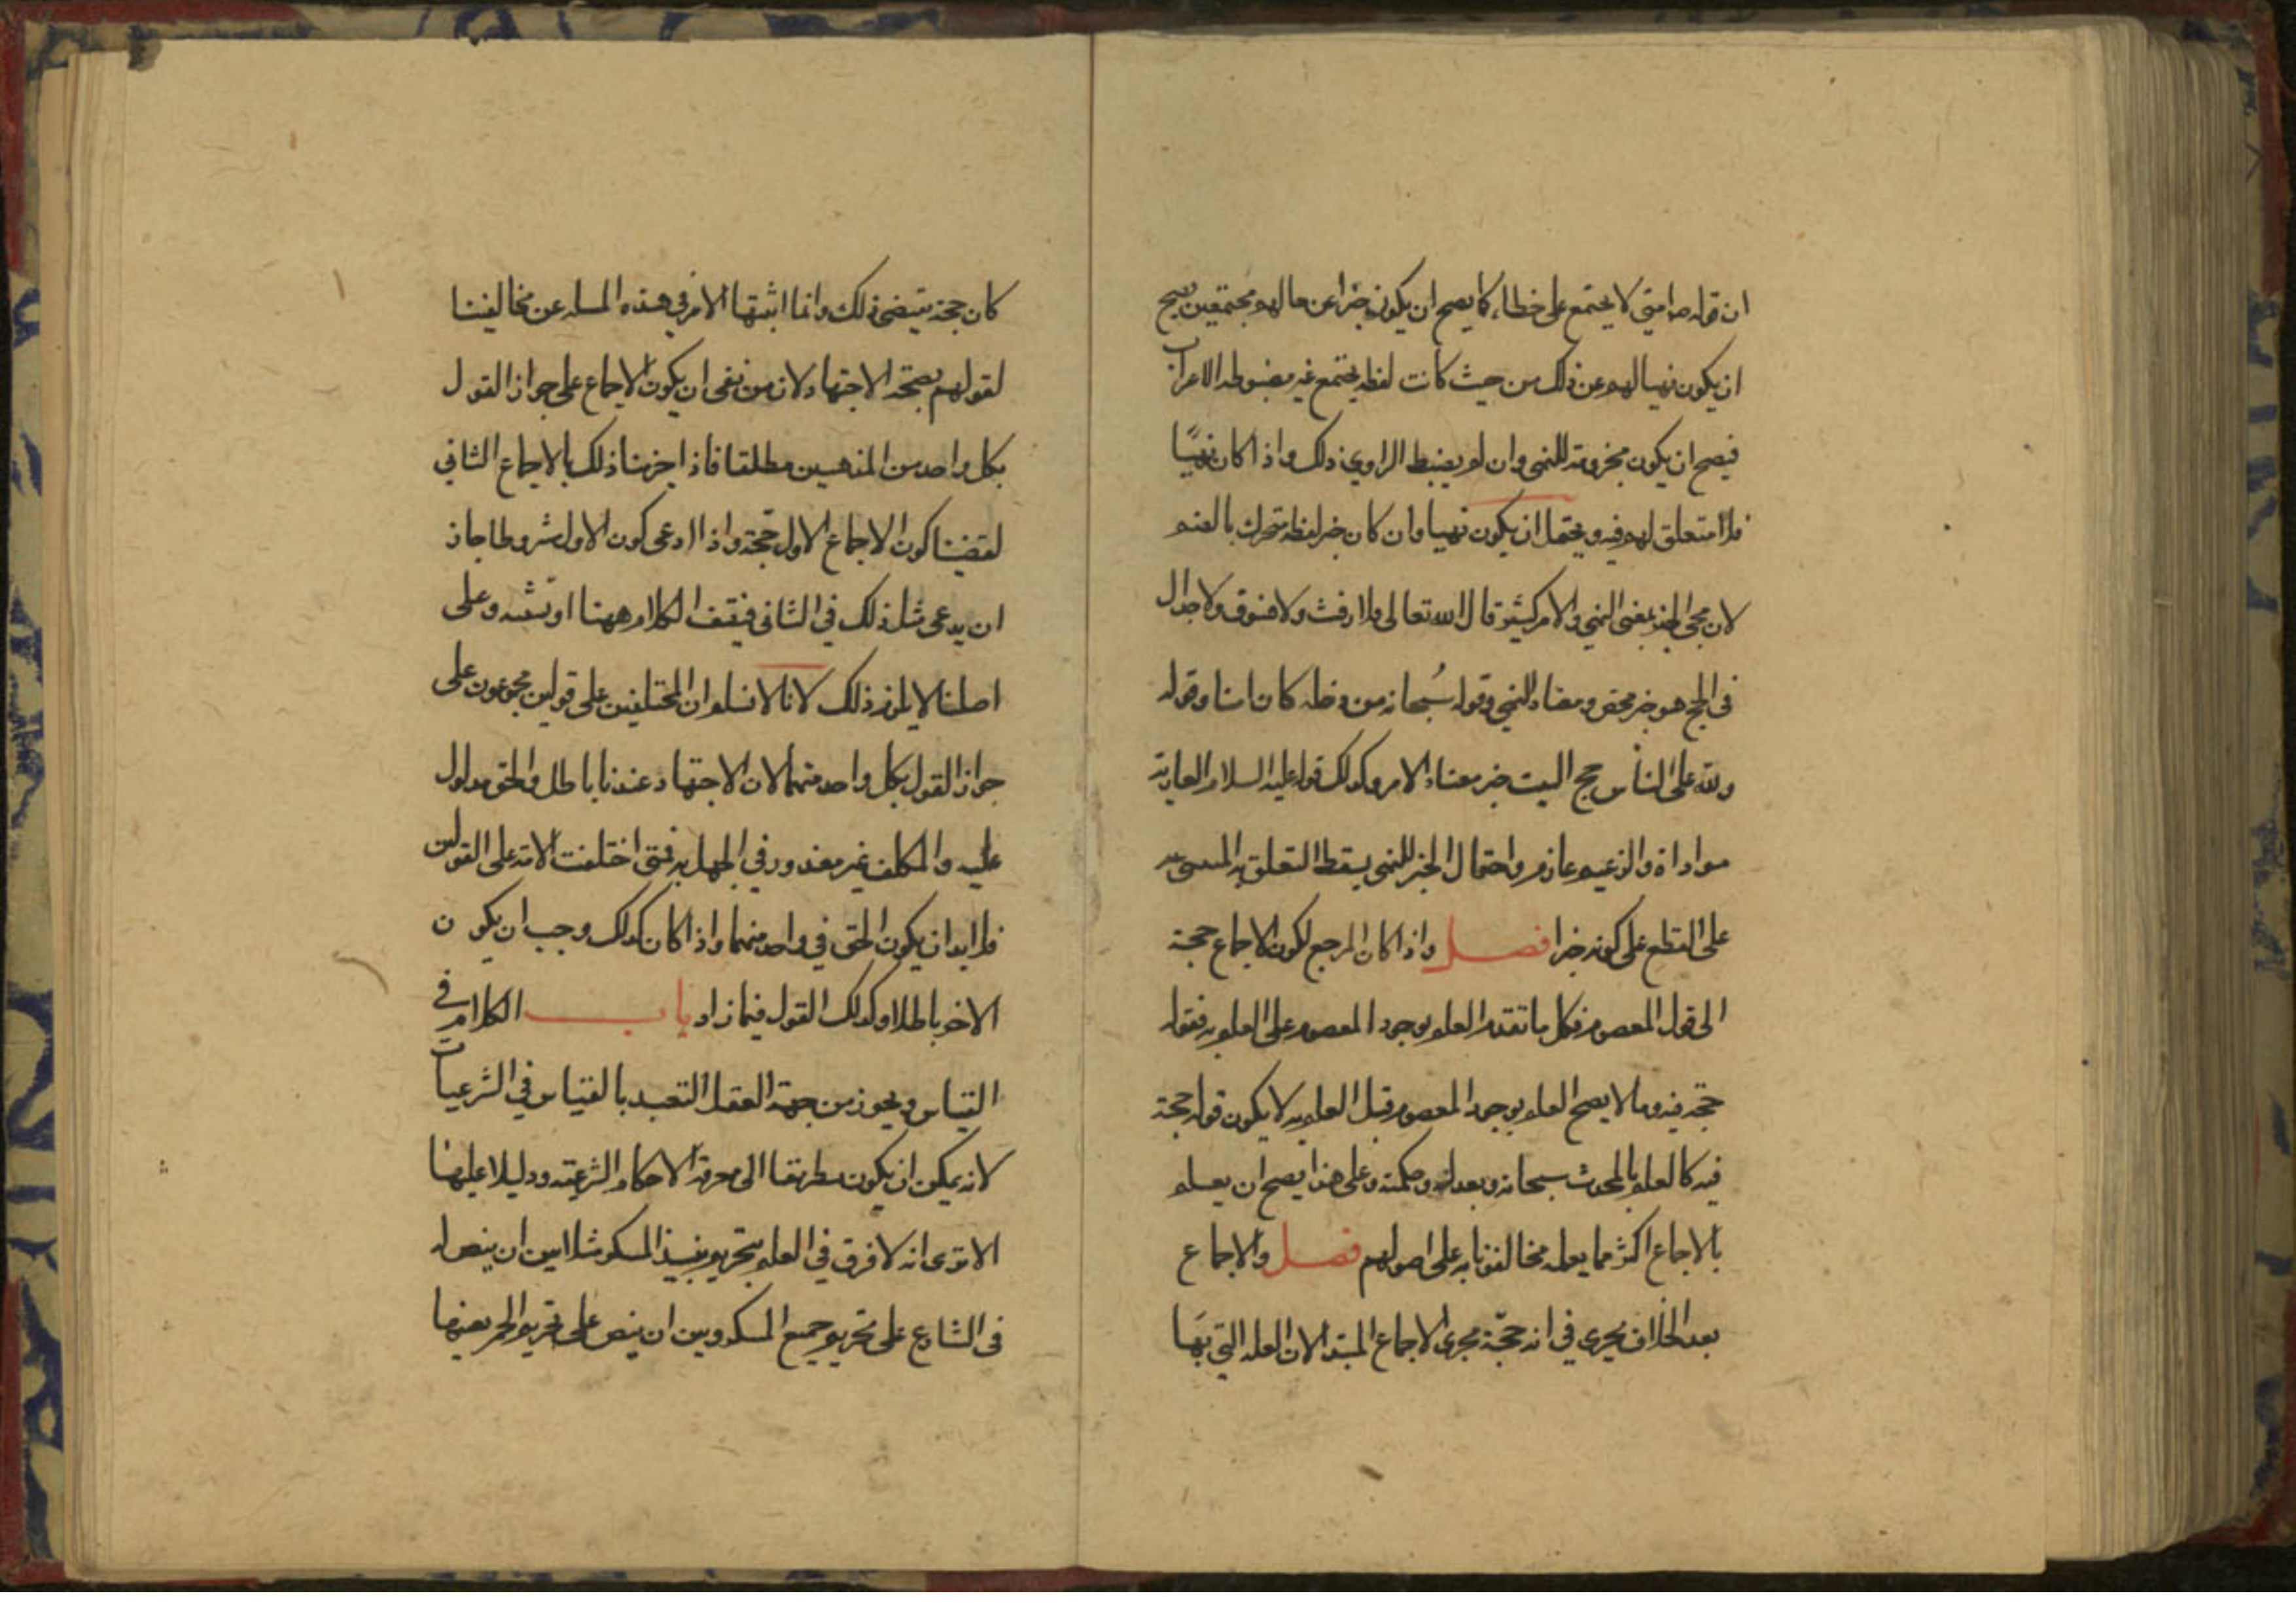 ان قوله ص امتي لا يجتمع على خطاء كما يصح ان يكون خبرا عن حالهم مجتمعين يصح
ان يكون نهيا لهم عن ذلك من حيث كانت لفظه يجتمع غير مضبوطه الاعراب
فيصح ان يكون مجزومة للنهي وان لم يضبط الراوي ذلك واذا كان نهيًا
فلا متعلق لهم فيه ويحتمل ان يكون نهيا وان كان خبر لفظه متحرك بالضم
لان مجي الخبر بمعنى النهي والامر كثير قال الله تعالى فلا رفث ولا فسوق ولا جدال
في الحج هو خبر محض ومعناه النهي وقوله سُبحانه من دخله كان امنا وقوله
ولله على الناس حج البيت خبر معناه الامر وكذلك قوله عليه السلام العارية
موداة والزعيم غارم واحتمال الخبر للنهي يسقط التعلق به
على القطع على كونه خبرا فصل واذا كان المرجع لكون الاجماع حجة
الى قول المعصوم فكل ما تقدم العلم بوجود المعصوم على العلم به فقوله
حجة فيه وما لا يصح العلم بوجود المعصوم قبل العلم به لا يكون قوله حجة
فيه كالعلم بالمحدث سبحانه وبعدله وحكمته وعلى هذا يصح ان يعلم
بالاجماع اكثر مما يعلمه مخالفونا به على اصولهم فصل والاجماع
بعد الخلاف يجري في انه حجّة مجرى الاجماع المبتدا لان العله التي بهَا
كان حجة يقتضي ذلك وانما اشتبها الامر في هذه المسله عن مخالفينا
لقولهم بصحة الاجتهاد ولانه من نفى ان يكون الاجماع على جواز القول
بكل واحد من المذهبين مطلقا فاذا اجزنا ذلك بالاجماع الثاني
نقضنا كون الاجماع الاول حجة واذا ادعى كون الاول مشروطا جاز
ان يدعى مثل ذلك في الثاني فيقف الكلام ههنا او يشتبه وعلى
اصلنا لا يلزم ذلك لانا لا نسلم ان المختلفين على قولين مجموعون على
جواز القول بكل واحد منهما لان الاجتهاد عندنا باطل والحق مدلول
عليه والمكلف غير معذور في الجهل به فمتى اختلفت الامة على القولين
فلا بد ان يكون الحق في واحد منهما واذا كان كذلك وجب ان يكون
الاخر باطلا وكذلك القول فيما زاد باب الكلام في
القياس ويجوز من جهة العقل التعبد بالقياس في الشرعيات
لانه يمكن ان يكون طريقا الى معرفة الاحكام الشرعية ودليلا عليها
الا ترى انه لا فرق في العلم بتحريم نبيذ المسكر مثلا بين ان ينص له
في الشارع على تحريم جميع المسكر وبين ان ينص على تحريم الخمر بعينها